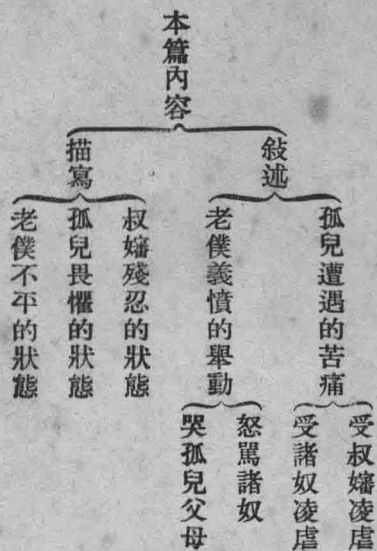 本篇內容
敍述
孤兒遭遇的苦痛
受叔嬸凌虐
受諸奴凌虐
老僕義憤的舉動
怒罵諸奴
哭孤兒父母
描寫
叔嬸殘忍的狀態
孤兒畏懼的狀態
老僕不平的狀態